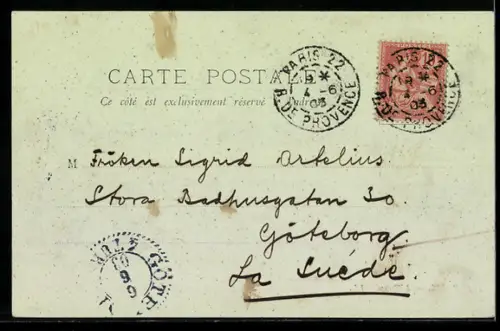 CARTE POSTALE
Ce côté est exclusivement réservé
PARIS 22
4 -6
03
R. DE PROVENCE
PARIS 22
-6
03
M Fröken Sigrid Artelius
Stora Badhusgatan 30.
Göteborg
La Suède.
GÖTE